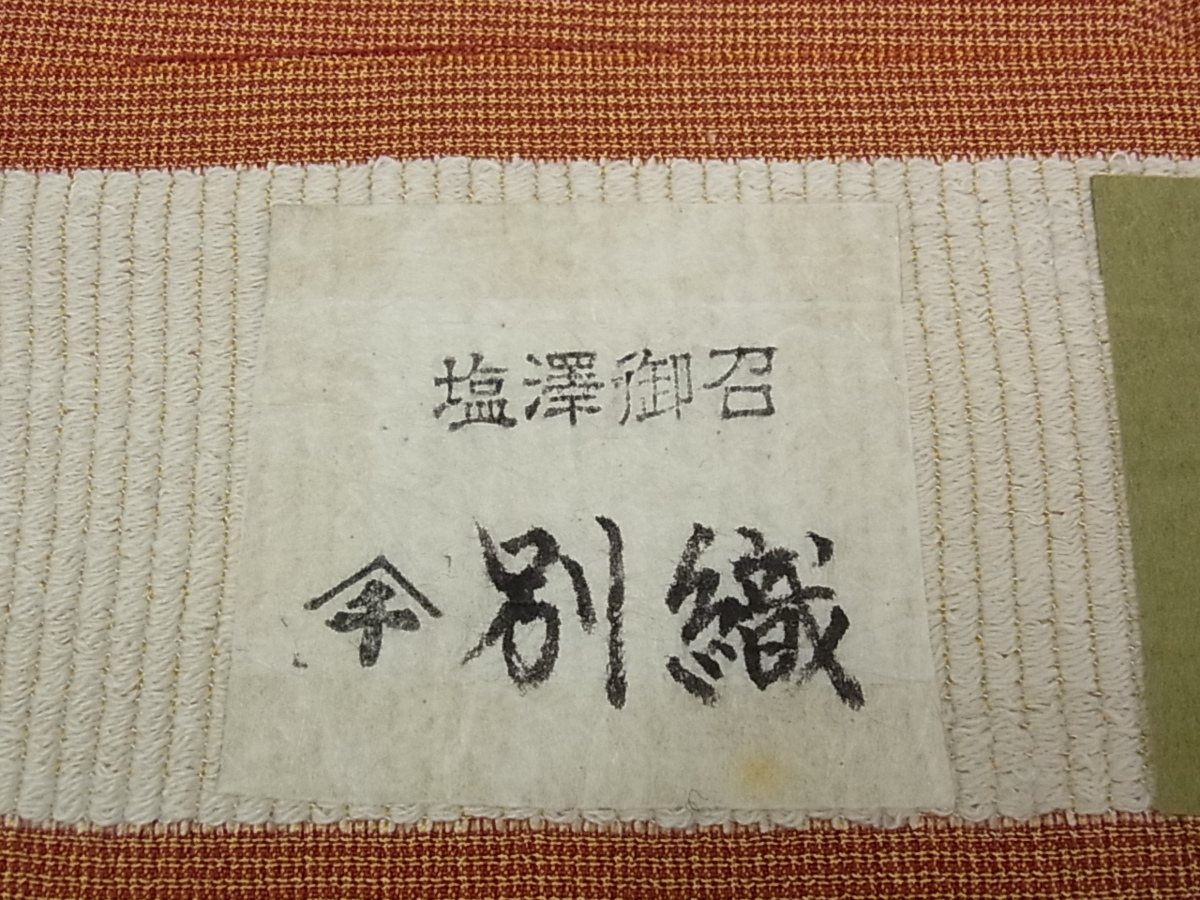 塩澤御召
千別織